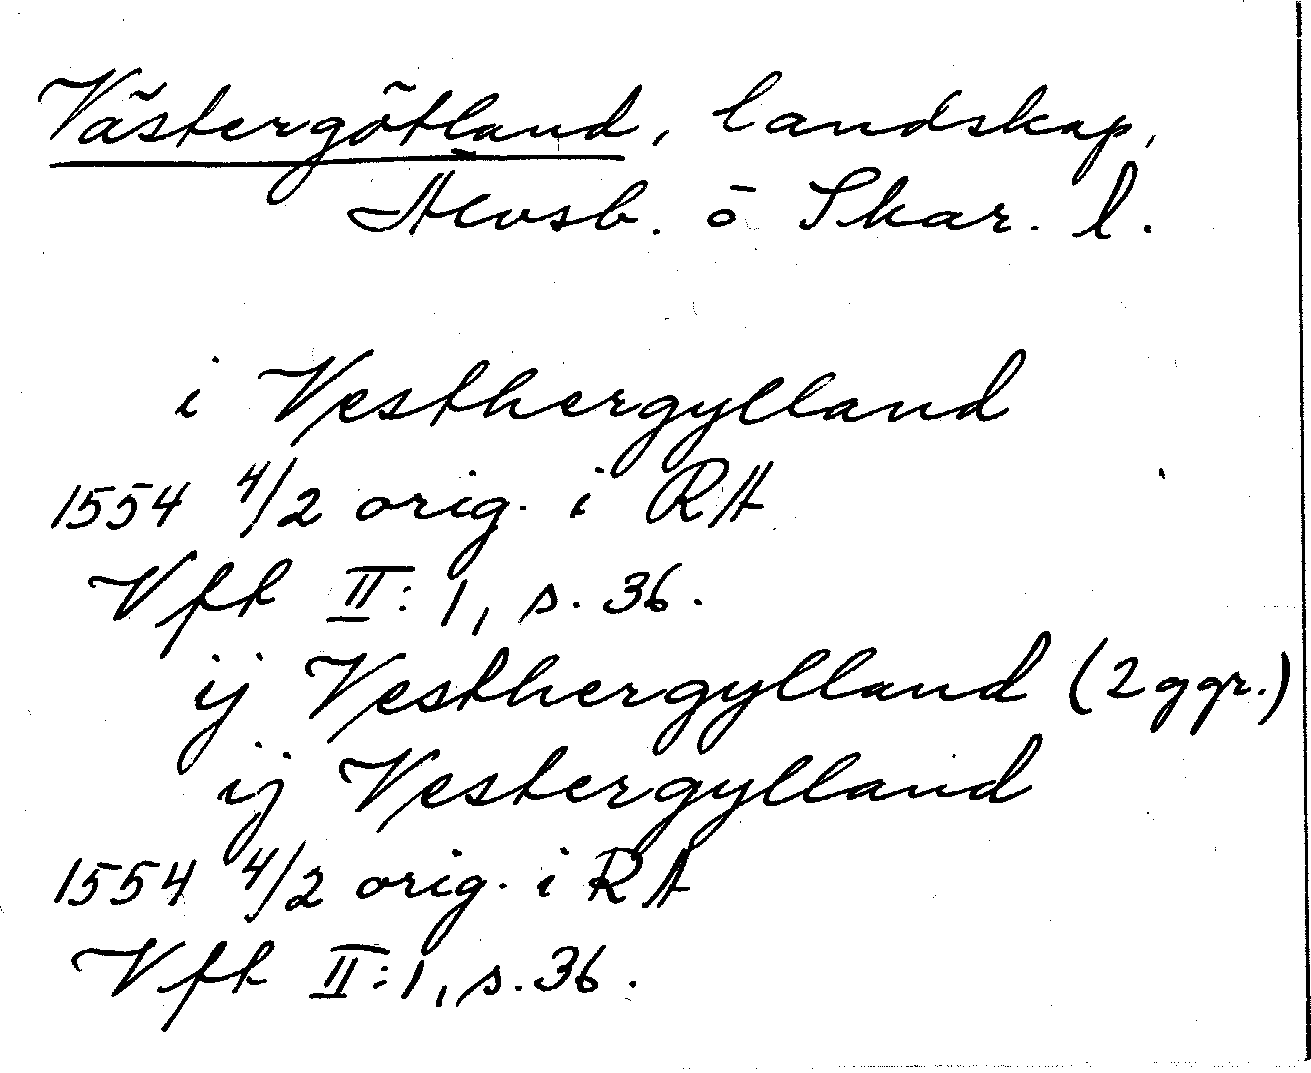 Västergötland, landskap,
Älvsb. o Skar. l.
i Vesthergylland
1554 4/2 orig. i RA
Vfk II:1, s. 36.
ij Vesthergylland (2 ggr.)
ij Vestergylland
1554 4/2 orig. i RA
Vfk II:1, s. 36.